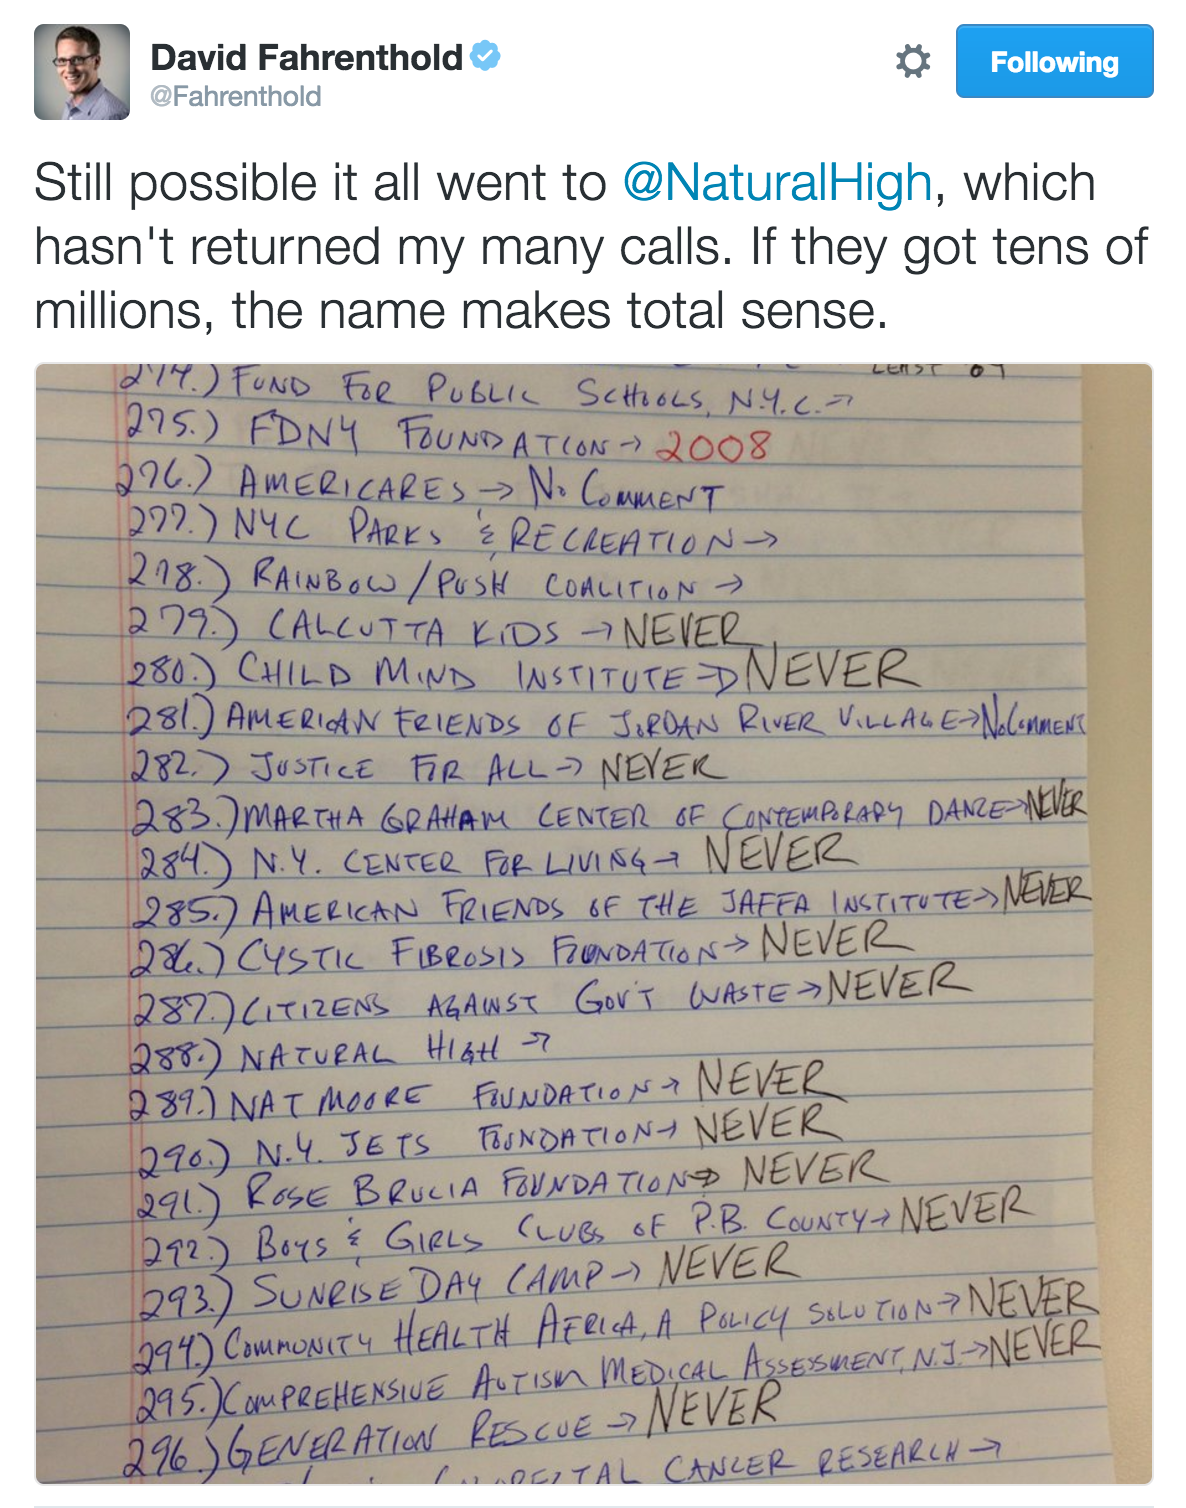 David Fahrenthold
@Fahrenthold
Following
Still possible it all went to @NaturalHigh, which
hasn't returned my many calls. If they got tens of
millions, the name makes total sense.
LEAST 07
274.) FUND FOR PUBLIC SCHOOLS, N.Y.C. →
275.) FDNY FOUNDATION → 2008
276.) AMERICARES → NO COMMENT
277.) NYC PARKS & RECREATION →
278.) RAINBOW/PUSH COALITION →
279.) CALCUTTA KIDS → NEVER
280.) CHILD MIND INSTITUTE → NEVER
281.) AMERICAN FRIENDS OF JORDAN RIVER VILLAGE → NO COMMENT
282.) JUSTICE FOR ALL → NEVER
283.) MARTHA GRAHAM CENTER OF CONTEMPORARY DANCE → NEVER
284.) N.Y. CENTER FOR LIVING → NEVER
285.) AMERICAN FRIENDS OF THE JAFFA INSTITUTE → NEVER
286.) CYSTIC FIBROSIS FOUNDATION → NEVER
287.) CITIZENS AGAINST GOV'T WASTE → NEVER
288.) NATURAL HIGH →
289.) NAT MOORE FOUNDATION → NEVER
290.) N.Y. JETS FOUNDATION → NEVER
291.) ROSE BRUCIA FOUNDATION → NEVER
292.) BOYS & GIRLS CLUBS OF P.B. COUNTY → NEVER
293.) SUNRISE DAY CAMP → NEVER
294.) COMMUNITY HEALTH AFRICA, A POLICY SOLUTION → NEVER
295.) COMPREHENSIVE AUTISM MEDICAL ASSESSMENT, N.J. → NEVER
296.) GENERATION RESCUE → NEVER
CANCER RESEARCH →